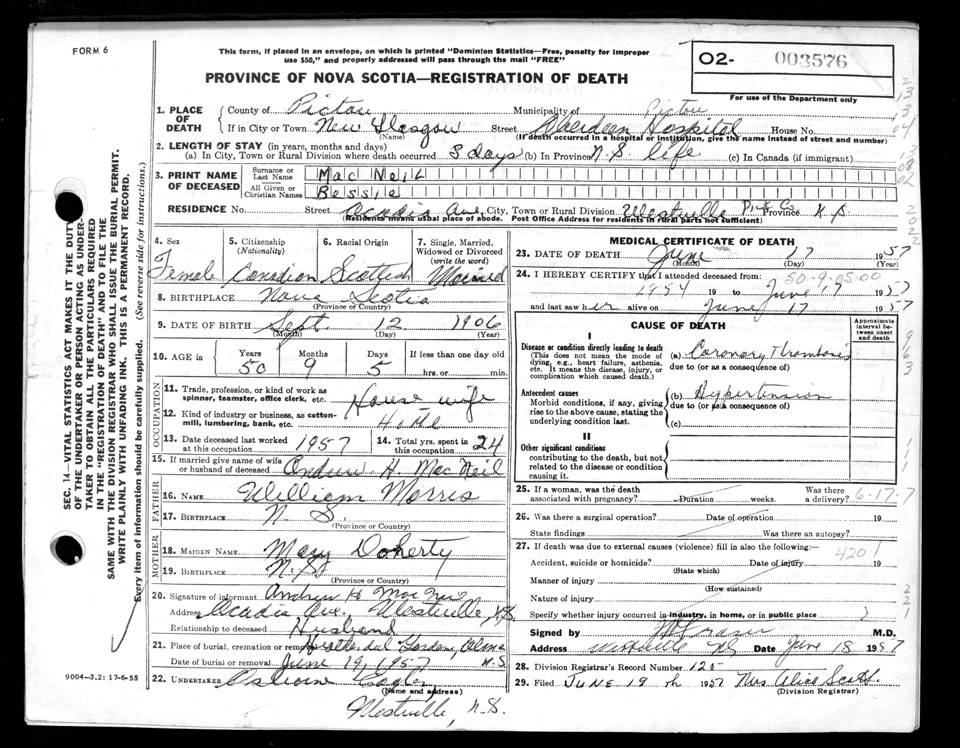 FORM 6
This form, if placed in an envelope, on which is printed "Dominion Statistics—Free, penalty for improper
use $50," and properly addressed will pass through the mail "FREE"
PROVINCE OF NOVA SCOTIA—REGISTRATION OF DEATH
O2- 003576
For use of the Department only
1. PLACE OF DEATH
County of Pictou Municipality of Pictou
If in City or Town New Glasgow (Name) Street Aberdeen Hospital House No.
(If death occurred in a hospital or institution, give the name instead of street and number)
2. LENGTH OF STAY (in years, months and days)
(a) In City, Town or Rural Division where death occurred 3 days (b) In Province N.S. life (c) In Canada (if immigrant)
3. PRINT NAME OF DECEASED
Surname or Last Name Mac Neil
All Given or Christian Names Bessie
RESIDENCE No. Street Acadia Ave. City, Town or Rural Division Westville Pict Co Province N.S.
(Residence means usual place of abode. Post Office Address for residents in rural parts not sufficient)
4. Sex Female
5. Citizenship (Nationality) Canadian
6. Racial Origin Scottish
7. Single, Married, Widowed or Divorced (write the word) Married
8. BIRTHPLACE Nova Scotia
(Province or Country)
9. DATE OF BIRTH Sept. 12 1906
(Month) (Day) (Year)
10. AGE in Years 50 Months 9 Days 5 If less than one day old hrs. or min.
OCCUPATION
11. Trade, profession, or kind of work as
spinner, teamster, office clerk, etc. House wife
12. Kind of industry or business, as cotton-
mill, lumbering, bank, etc. Home
13. Date deceased last worked
at this occupation 1957
14. Total yrs. spent in
this occupation 24
15. If married give name of wife
or husband of deceased Andrew H. Mac Neil
FATHER
16. NAME William Morris
17. BIRTHPLACE N.S.
(Province or Country)
MOTHER
18. MAIDEN NAME Mary Doherty
19. BIRTHPLACE N.S.
(Province or Country)
20. Signature of informant Andrew H Mac Neil
Address Acadia Ave., Westville, N.S.
Relationship to deceased Husband
21. Place of burial, cremation or removal Heatherdel Gardens, Alma
Date of burial or removal June 19, 1957 N.S.
22. UNDERTAKER Osborne
(Name and address)
Westville, N.S.
9004—3.2: 17-6-55
MEDICAL CERTIFICATE OF DEATH
23. DATE OF DEATH June 17 1957
(Month) (Day) (Year)
24. I HEREBY CERTIFY that I attended deceased from:
50-9-05-00
1954 19 to June 17 1957
and last saw her alive on June 17 1957
CAUSE OF DEATH
Approximate interval between onset and death
I
Disease or condition directly leading to death
(This does not mean the mode of
dying, e.g., heart failure, asthenia,
etc. It means the disease, injury, or
complication which caused death.)
(a) Coronary Thrombosis
due to (or as a consequence of)
Antecedent causes
Morbid conditions, if any, giving
rise to the above cause, stating the
underlying condition last.
(b) Hypertension
due to (or as a consequence of)
(c)
II
Other significant conditions
contributing to the death, but not
related to the disease or condition
causing it.
25. If a woman, was the death
associated with pregnancy? Duration weeks. Was there
a delivery? 6-17-7
26. Was there a surgical operation? Date of operation 19
State findings Was there an autopsy?
27. If death was due to external causes (violence) fill in also the following:—
4201
Accident, suicide or homicide? Date of injury 19
(State which)
Manner of injury
(How sustained)
Nature of injury
Specify whether injury occurred in industry, in home, or in public place
Signed by M.D.
Address Westville NS Date June 18 1957
28. Division Registrar's Record Number 125
29. Filed JUNE 19 th 1957 Mrs Alice Scott.
(Division Registrar)
SEC. 14—VITAL STATISTICS ACT MAKES IT THE DUTY
OF THE UNDERTAKER OR PERSON ACTING AS UNDER-
TAKER TO OBTAIN ALL THE PARTICULARS REQUIRED
IN THE "REGISTRATION OF DEATH" AND TO FILE THE
SAME WITH THE DIVISION REGISTRAR WHO SHALL ISSUE THE BURIAL PERMIT.
WRITE PLAINLY WITH UNFADING INK. THIS IS A PERMANENT RECORD.
Every item of information should be carefully supplied. (See reverse side for instructions.)